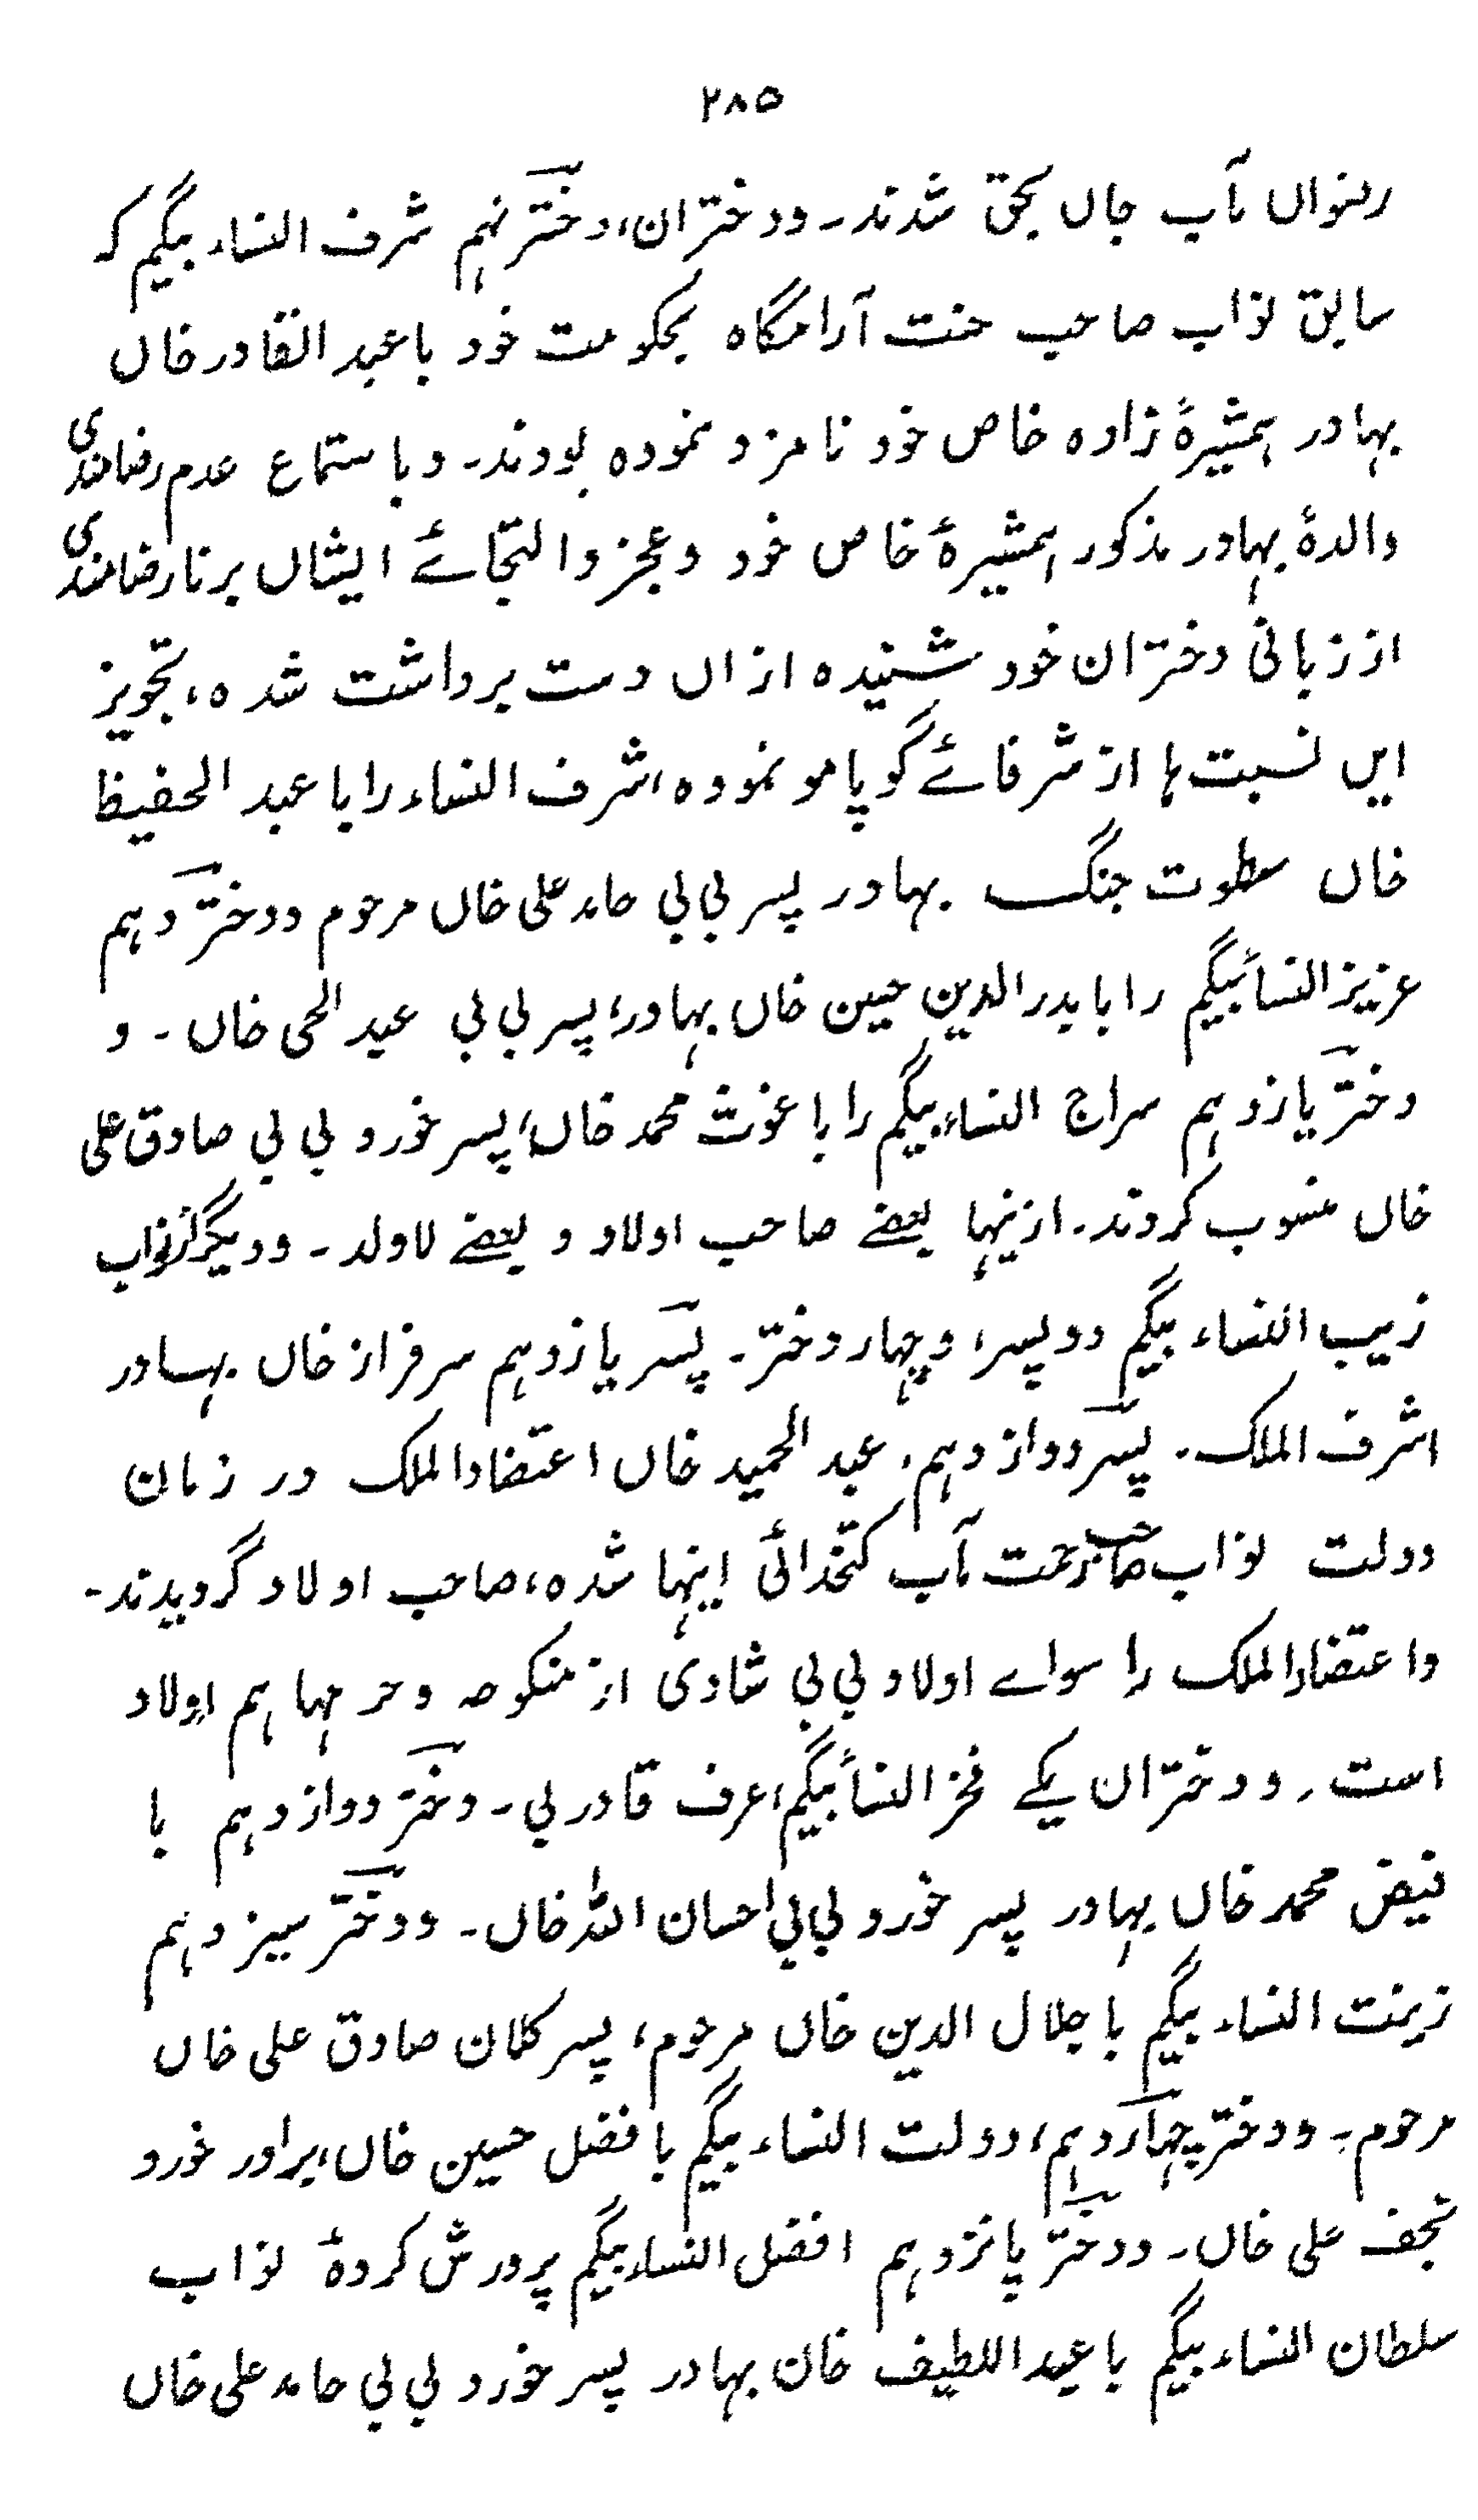 ۲۸۵
رضواں مآب جاں بحق شدند۔ ودختران، دختر نہم شرف النساء بیگم کہ
سابق نواب صاحب جنت آرامگاہ بحکومت خود با عبد القادر خاں
بہادر ہمشیرۂ زادہ خاص خود نامزد نمودہ بودند۔ و باستماع عدم رضامندی
والدۂ بہادر مذکور ہمشیرۂ خاص خود وعجز والتجائے ایشاں بر نارضامندی
از زبانی دختران خود شنیدہ ازاں دست برداشت شدہ، تجویز
ایں نسبت ہا از شرفائے گوپامو نمودہ، شرف النساء را با عبد الحفیظ
خاں سطوت جنگ بہادر پسر بی بی حامد علی خاں مرحوم ودختر دہم
عزیز النسأ بیگم را با بدر الدین حسین خاں بہادر، پسر بی بی عبد الحی خاں۔ و
دختر یازدہم سراج النساء بیگم را با غوث محمد خاں، پسر خورد بی بی صادق علی
خاں منسوب کردند۔ ازینہا بعضے صاحب اولاد و بعضے لاولد۔ ودیگر از نواب
زیب النساء بیگم دو پسر، وچہار دختر۔ پسر یازدہم سرفراز خاں بہادر
اشرف الملک۔ پسر دوازدہم، عبد الحمید خاں اعتضاد الملک در زمان
دولت نواب صاحب رحمت مآب کتخدائی اینہا شدہ، صاحب اولاد گردیدند۔
واعتضاد الملک را سواے اولاد بی بی شادی از منکوحہ وحرمہا ہم اولاد
است، ودختران یکے فخر النسأ بیگم، عرف قادر بی۔ دختر دوازدہم با
فیض محمد خاں بہادر پسر خورد بی بی احسان اللہ خاں۔ ودختر سیزدہم
زینت النساء بیگم با جلال الدین خاں مرحوم، پسر کلان صادق علی خاں
مرحوم۔ ودختر چہاردہم، دولت النساء بیگم با فضل حسین خاں، برادر خورد
نجف علی خاں۔ ودختر پانزدہم افضل النساء بیگم پرورش کردۂ نواب
سلطان النساء بیگم با عبد اللطیف خان بہادر پسر خورد بی بی حامد علی خاں